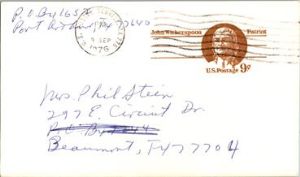 P.O. Box 1652
Port TX 77640
5 SEP
1976
John Witherspoon Patriot
U.S. Postage 9¢
Mrs. Phil Steen
297 E. Circuit Dr.
Beaumont, TX 77704